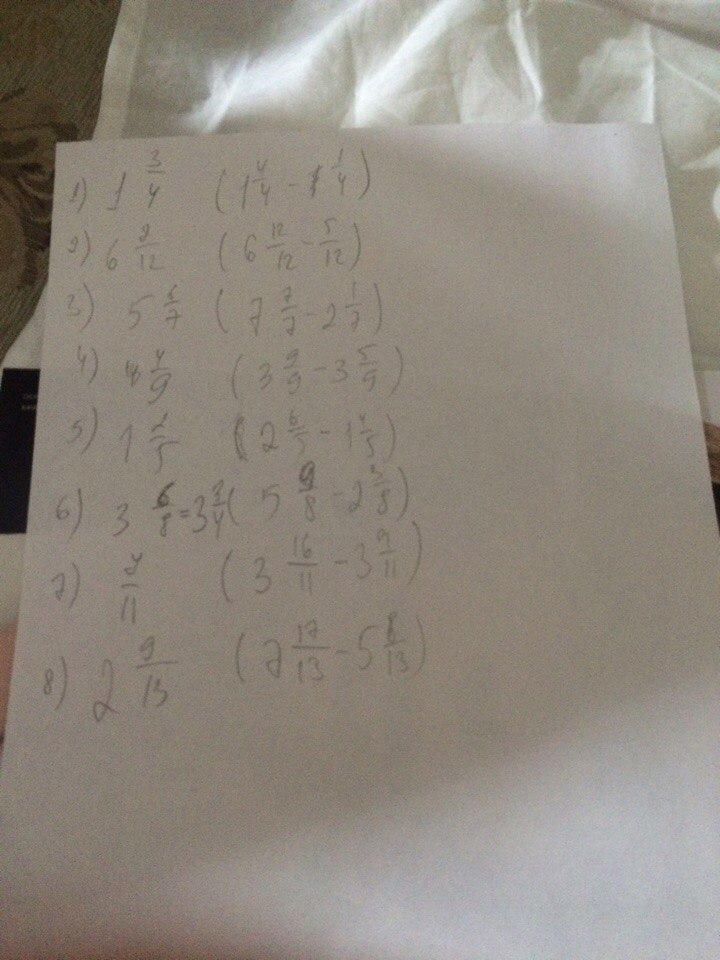 1) 1 3/4 (1 4/4 - 1 1/4)
2) 6 7/12 (6 12/12 - 5/12)
3) 5 6/7 (7 7/7 - 2 1/7)
4) 4/9 (3 9/9 - 3 5/9)
5) 1 2/5 (2 6/5 - 1 4/5)
6) 3 6/8 = 3 3/4 (5 9/8 - 2 3/8)
7) 7/11 (3 16/11 - 3 9/11)
8) 2 9/13 (7 17/13 - 5 8/13)